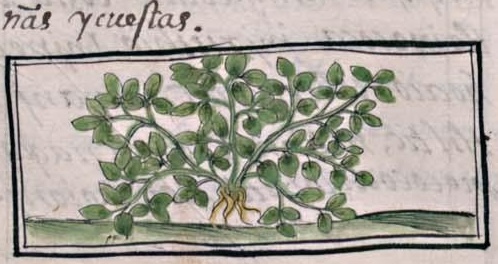 ñas y cuestas.